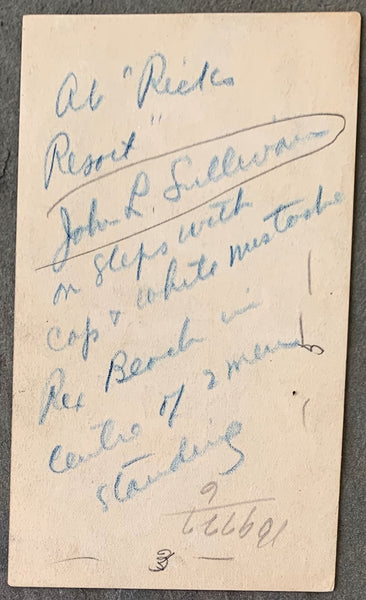 At "Ricks
Resort"
John L. Sullivan
on steps with
cap & white mustache
Rex Beach in
centre of 2 men
standing
169777
6